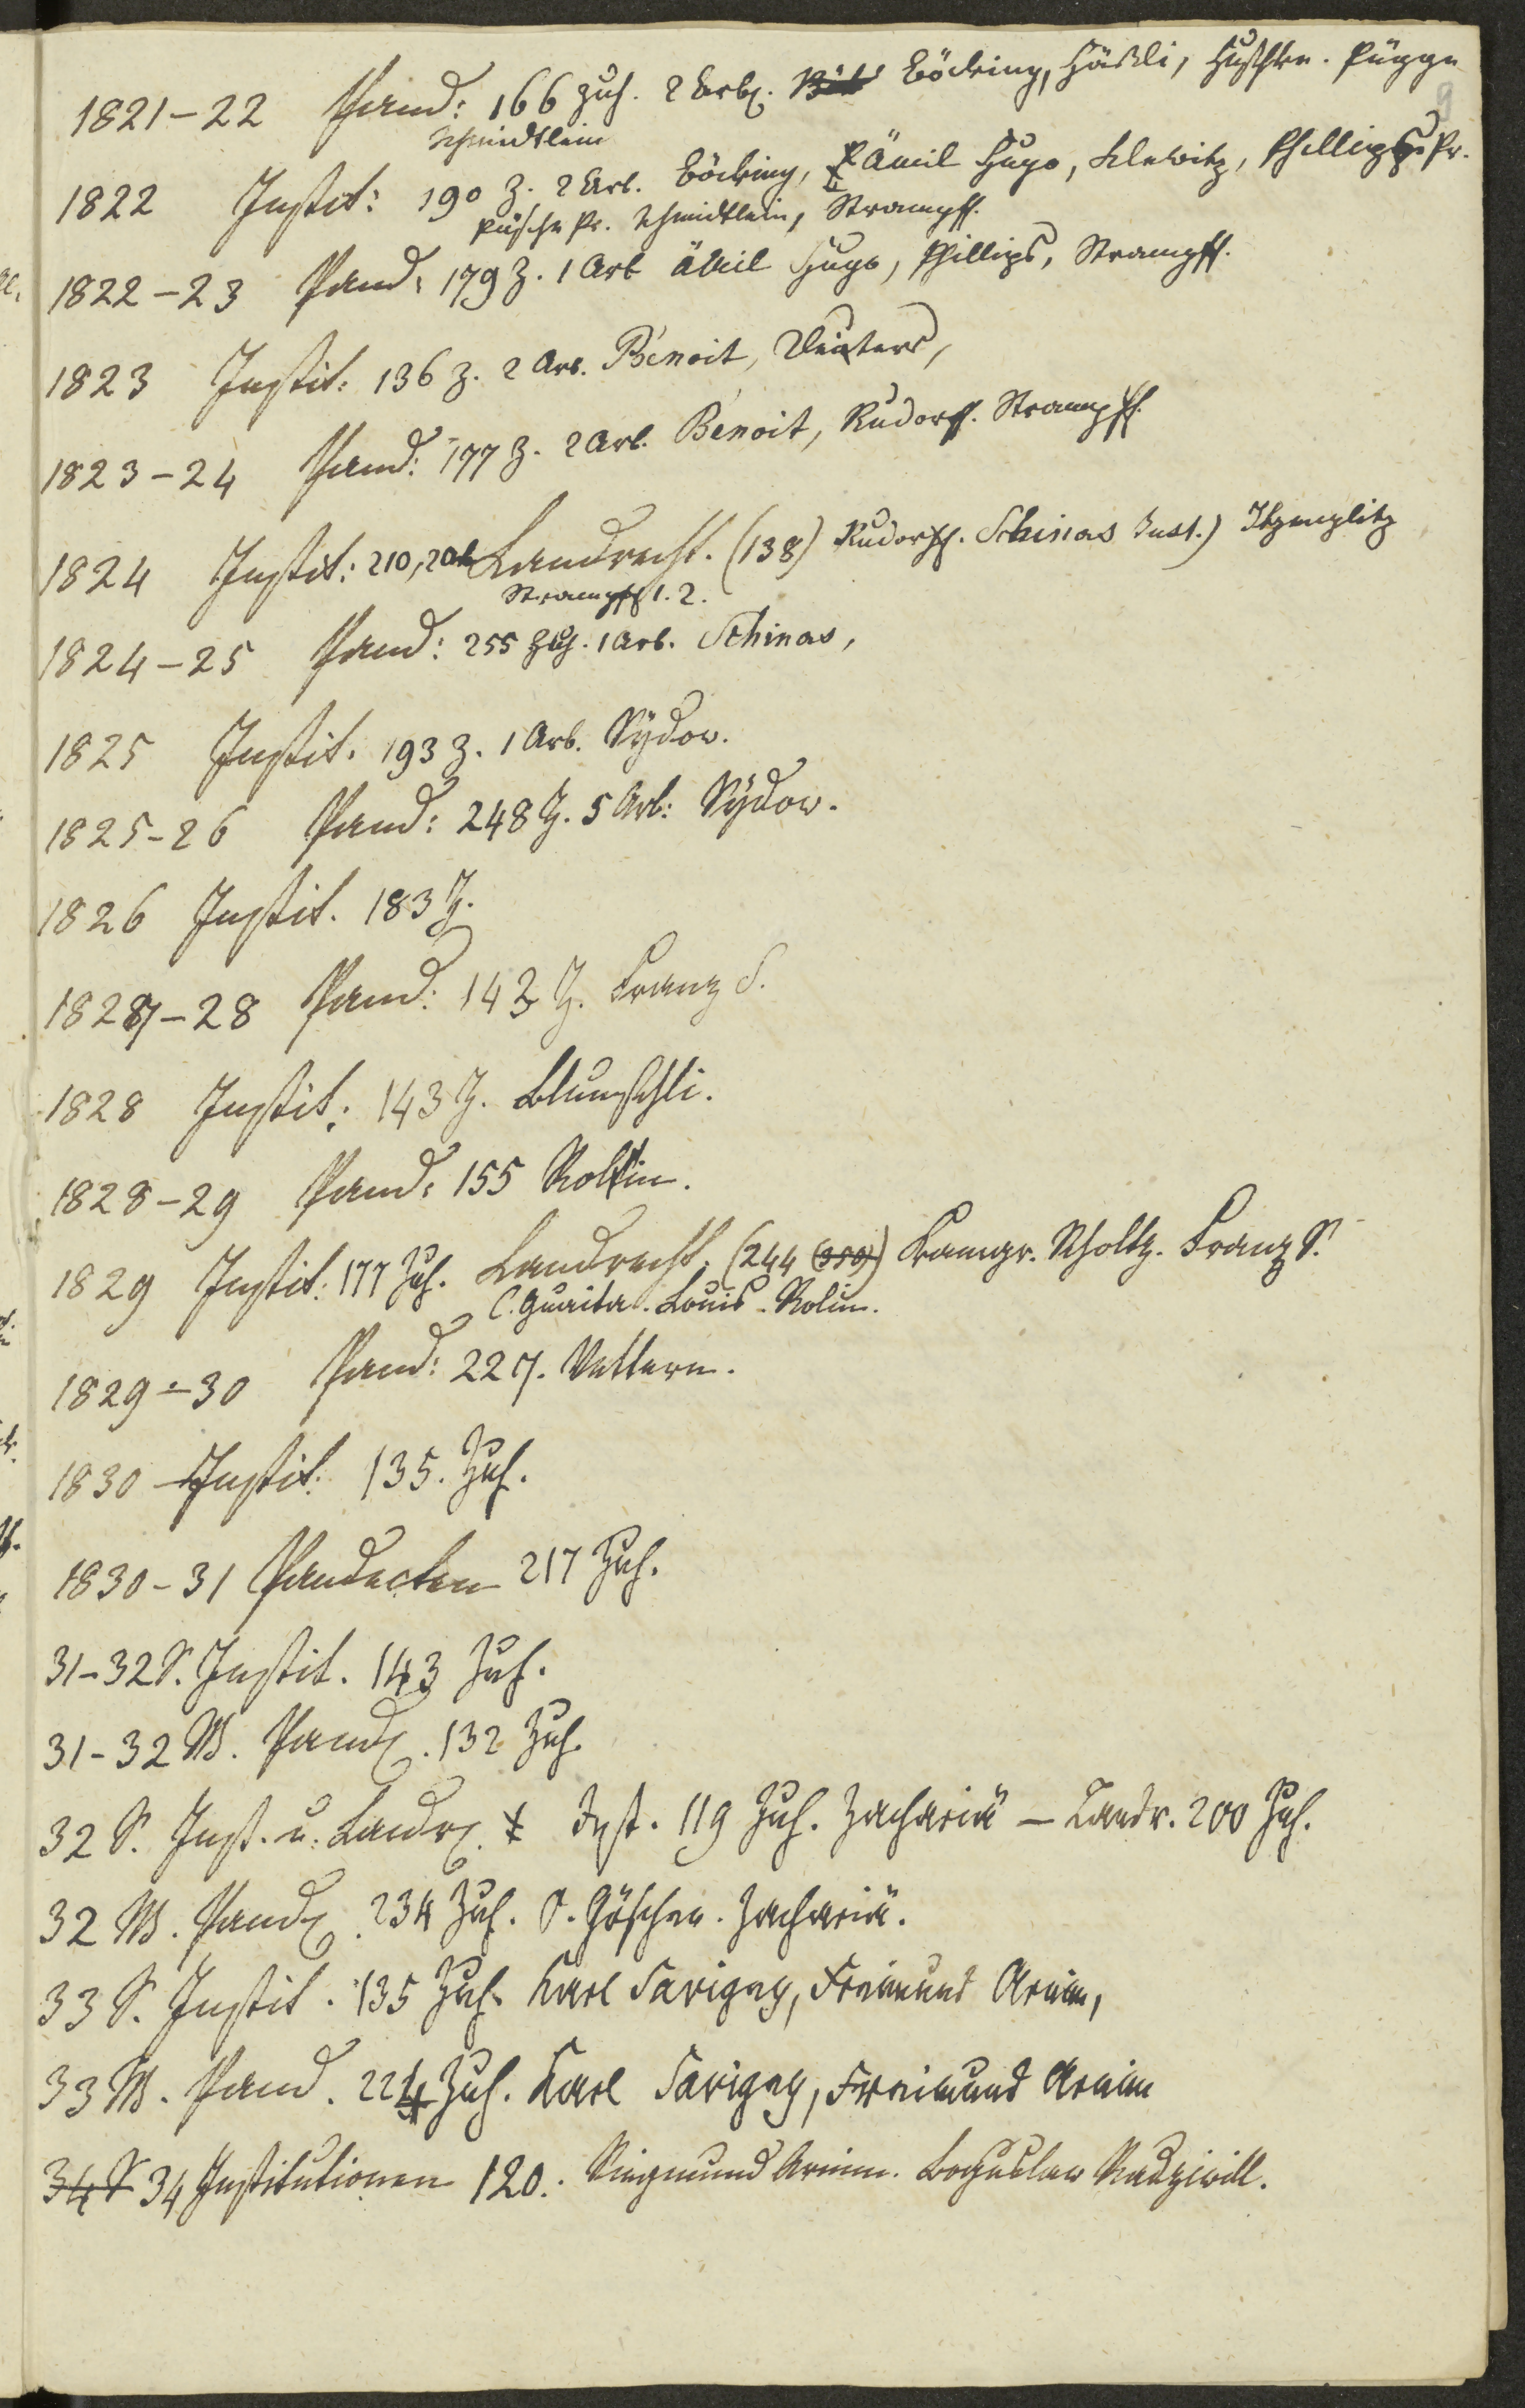 1821-22 Pand: 166 Zuh. 2 Arb. Böcking, Häßli, Huschke. Pügge
Schmidtlein
9
1822 Instit: 190 Z. 2 Arb. Böcking, Ämil Hugo, Klewitz, Phillips Pr.
Pr. Schmidtlein, Strampff.
1822-23 Pand: 179 Z. 1 Arb Ämil Hugo, Phillips, Strampff.
1823 Instit: 136 Z. 2 Arb. Benoit, Deiters,
1823-24 Pand: 177 Z. 2 Arb. Benoit, Rudorff. Strampff
1824 Instit: 210, Landrecht. (138) Rudorff. Schinas Inst.) Itzenplitz
Strampff 1. 2.
1824-25 Pand: 255 Zuh. 1 Arb. Schinas,
1825 Instit. 193 Z. 1 Arb. Sydow.
1825-26 Pand: 248 Z. 5 Arb: Sydow.
1826 Instit. 183 Z.
1827-28 Pand: 142 Z. Franz S.
1828 Instit: 143 Z. Bluntschli.
1828-29 Pand: 155 Roltin.
1829 Instit: 177 Zuh. Landrecht. (244 (350)) Scholtz. Franz S.
C. Guaita. Louis. Rolin.
1829-30 Pand: 227. Vettern.
1830 Instit: 135. Zuh.
1830-31 Pandecten 217 Zuh.
31-32 S. Instit. 143 Zuh.
31-32 W. Pand. 132 Zuh.
32 S. Inst. u. Landr. Inst. 119 Zuh. Zachariä - Landr. 200 Zuh.
32 W. Pand. 234 Zuh. O. Göschen. Zachariä.
33 S. Instit. 135 Zuh. Karl Savigny, Freimund Arnim,
33 W. Pand. 224 Zuh. Karl Savigny, Freimund Arnim
34 S 34 Institutionen 120. Siegmund Arnim. Boguslaw Radziwill.